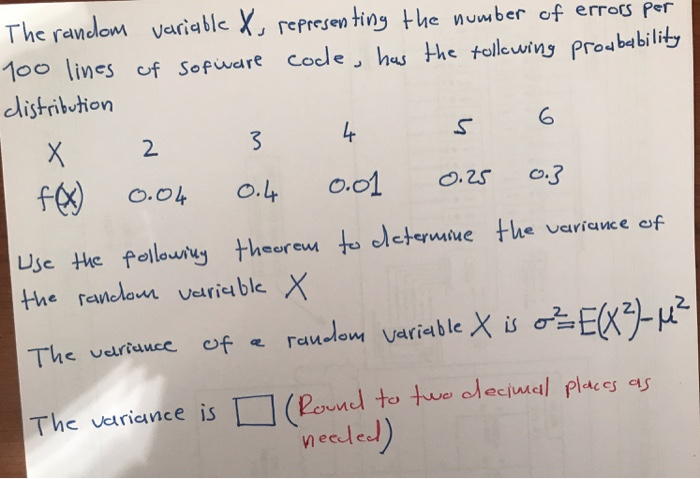 The random variable X, representing the number of errors per
100 lines of sofware code, has the following proabability
distribution
X 2 3 4 5 6
f(x) 0.04 0.4 0.01 0.25 0.3
Use the following theorem to determine the variance of
the random variable X
The variance of a random variable X is σ²=E(X²)-μ²
The variance is □ (Round to two decimal places as
needed)